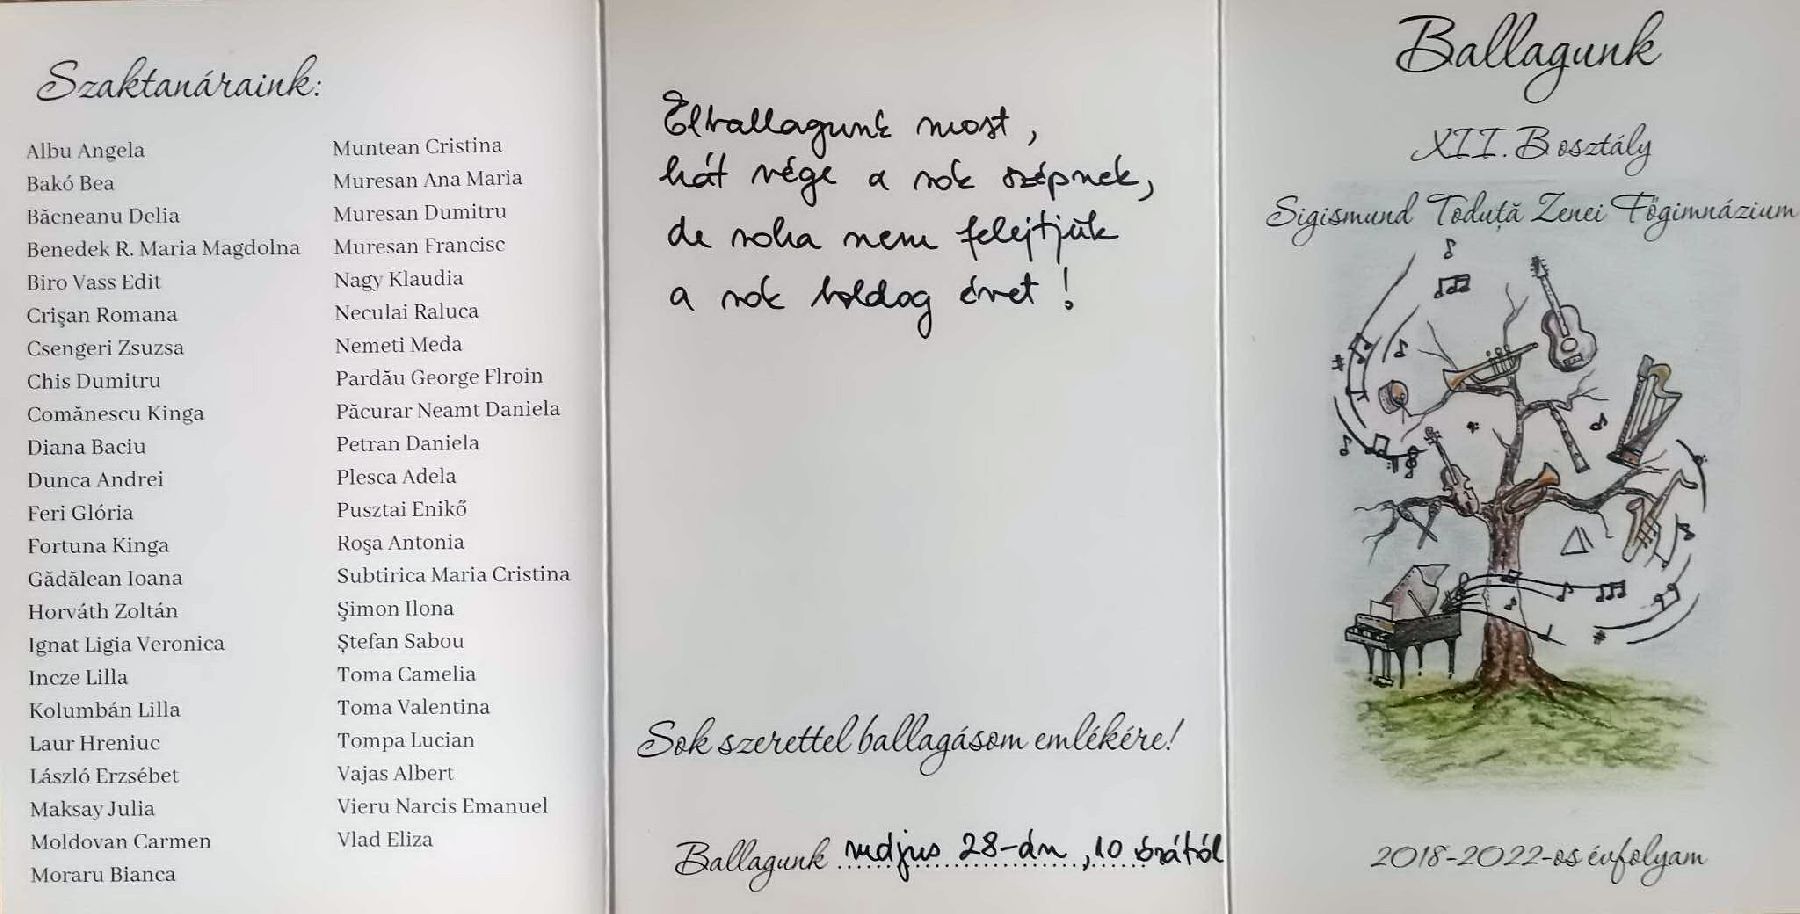 Szaktanáraink:
Albu Angela
Bakó Bea
Băcneanu Delia
Benedek R. Maria Magdolna
Biro Vass Edit
Crişan Romana
Csengeri Zsuzsa
Chis Dumitru
Comănescu Kinga
Diana Baciu
Dunca Andrei
Feri Glória
Fortuna Kinga
Gădălean Ioana
Horváth Zoltán
Ignat Ligia Veronica
Incze Lilla
Kolumbán Lilla
Laur Hreniuc
László Erzsébet
Maksay Julia
Moldovan Carmen
Moraru Bianca
Muntean Cristina
Muresan Ana Maria
Muresan Dumitru
Muresan Francisc
Nagy Klaudia
Neculai Raluca
Nemeti Meda
Pardău George Flroin
Păcurar Neamt Daniela
Petran Daniela
Plesca Adela
Pusztai Enikő
Roşa Antonia
Subtirica Maria Cristina
Şimon Ilona
Ştefan Sabou
Toma Camelia
Toma Valentina
Tompa Lucian
Vajas Albert
Vieru Narcis Emanuel
Vlad Eliza
Elballagunk most,
hát vége a sok szépnek,
de soha nem felejtjük
a sok boldog évet!
Sok szerettel ballagásom emlékére!
Ballagunk május 28-án, 10 órától
Ballagunk
XII. B osztály
Sigismund Toduţă Zenei Főgimnázium
2018-2022-os évfolyam